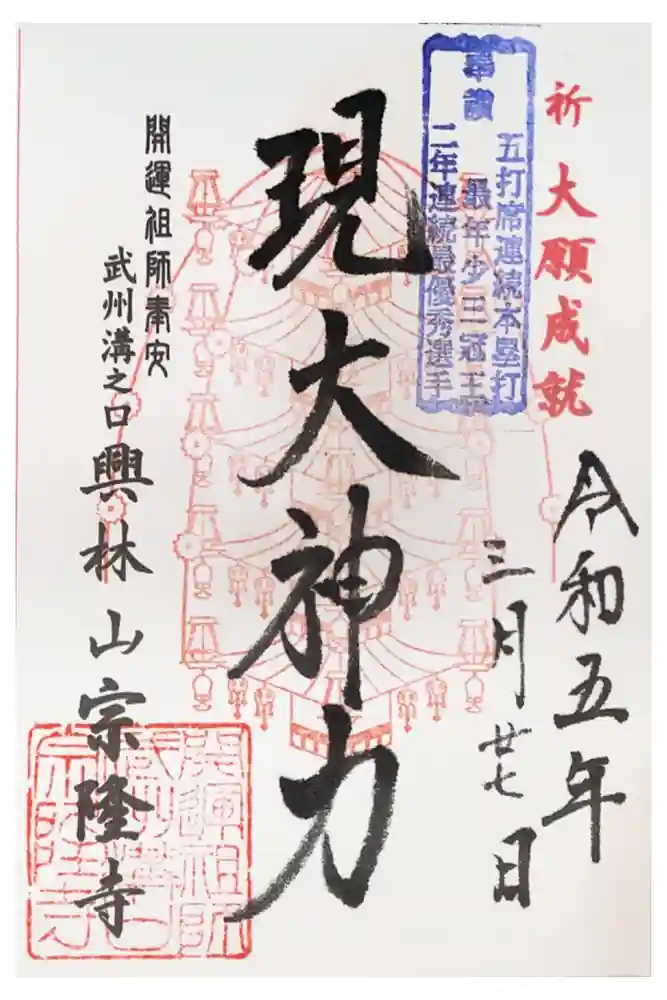 祈 大願成就
令和五年
三月廿七日
奉讃
五打席連続本塁打
最年少三冠王
二年連続最優秀選手
現大神力
開運祖師奉安
武州溝之口
興林山宗隆寺
開運祖師
武州溝口
宗隆寺